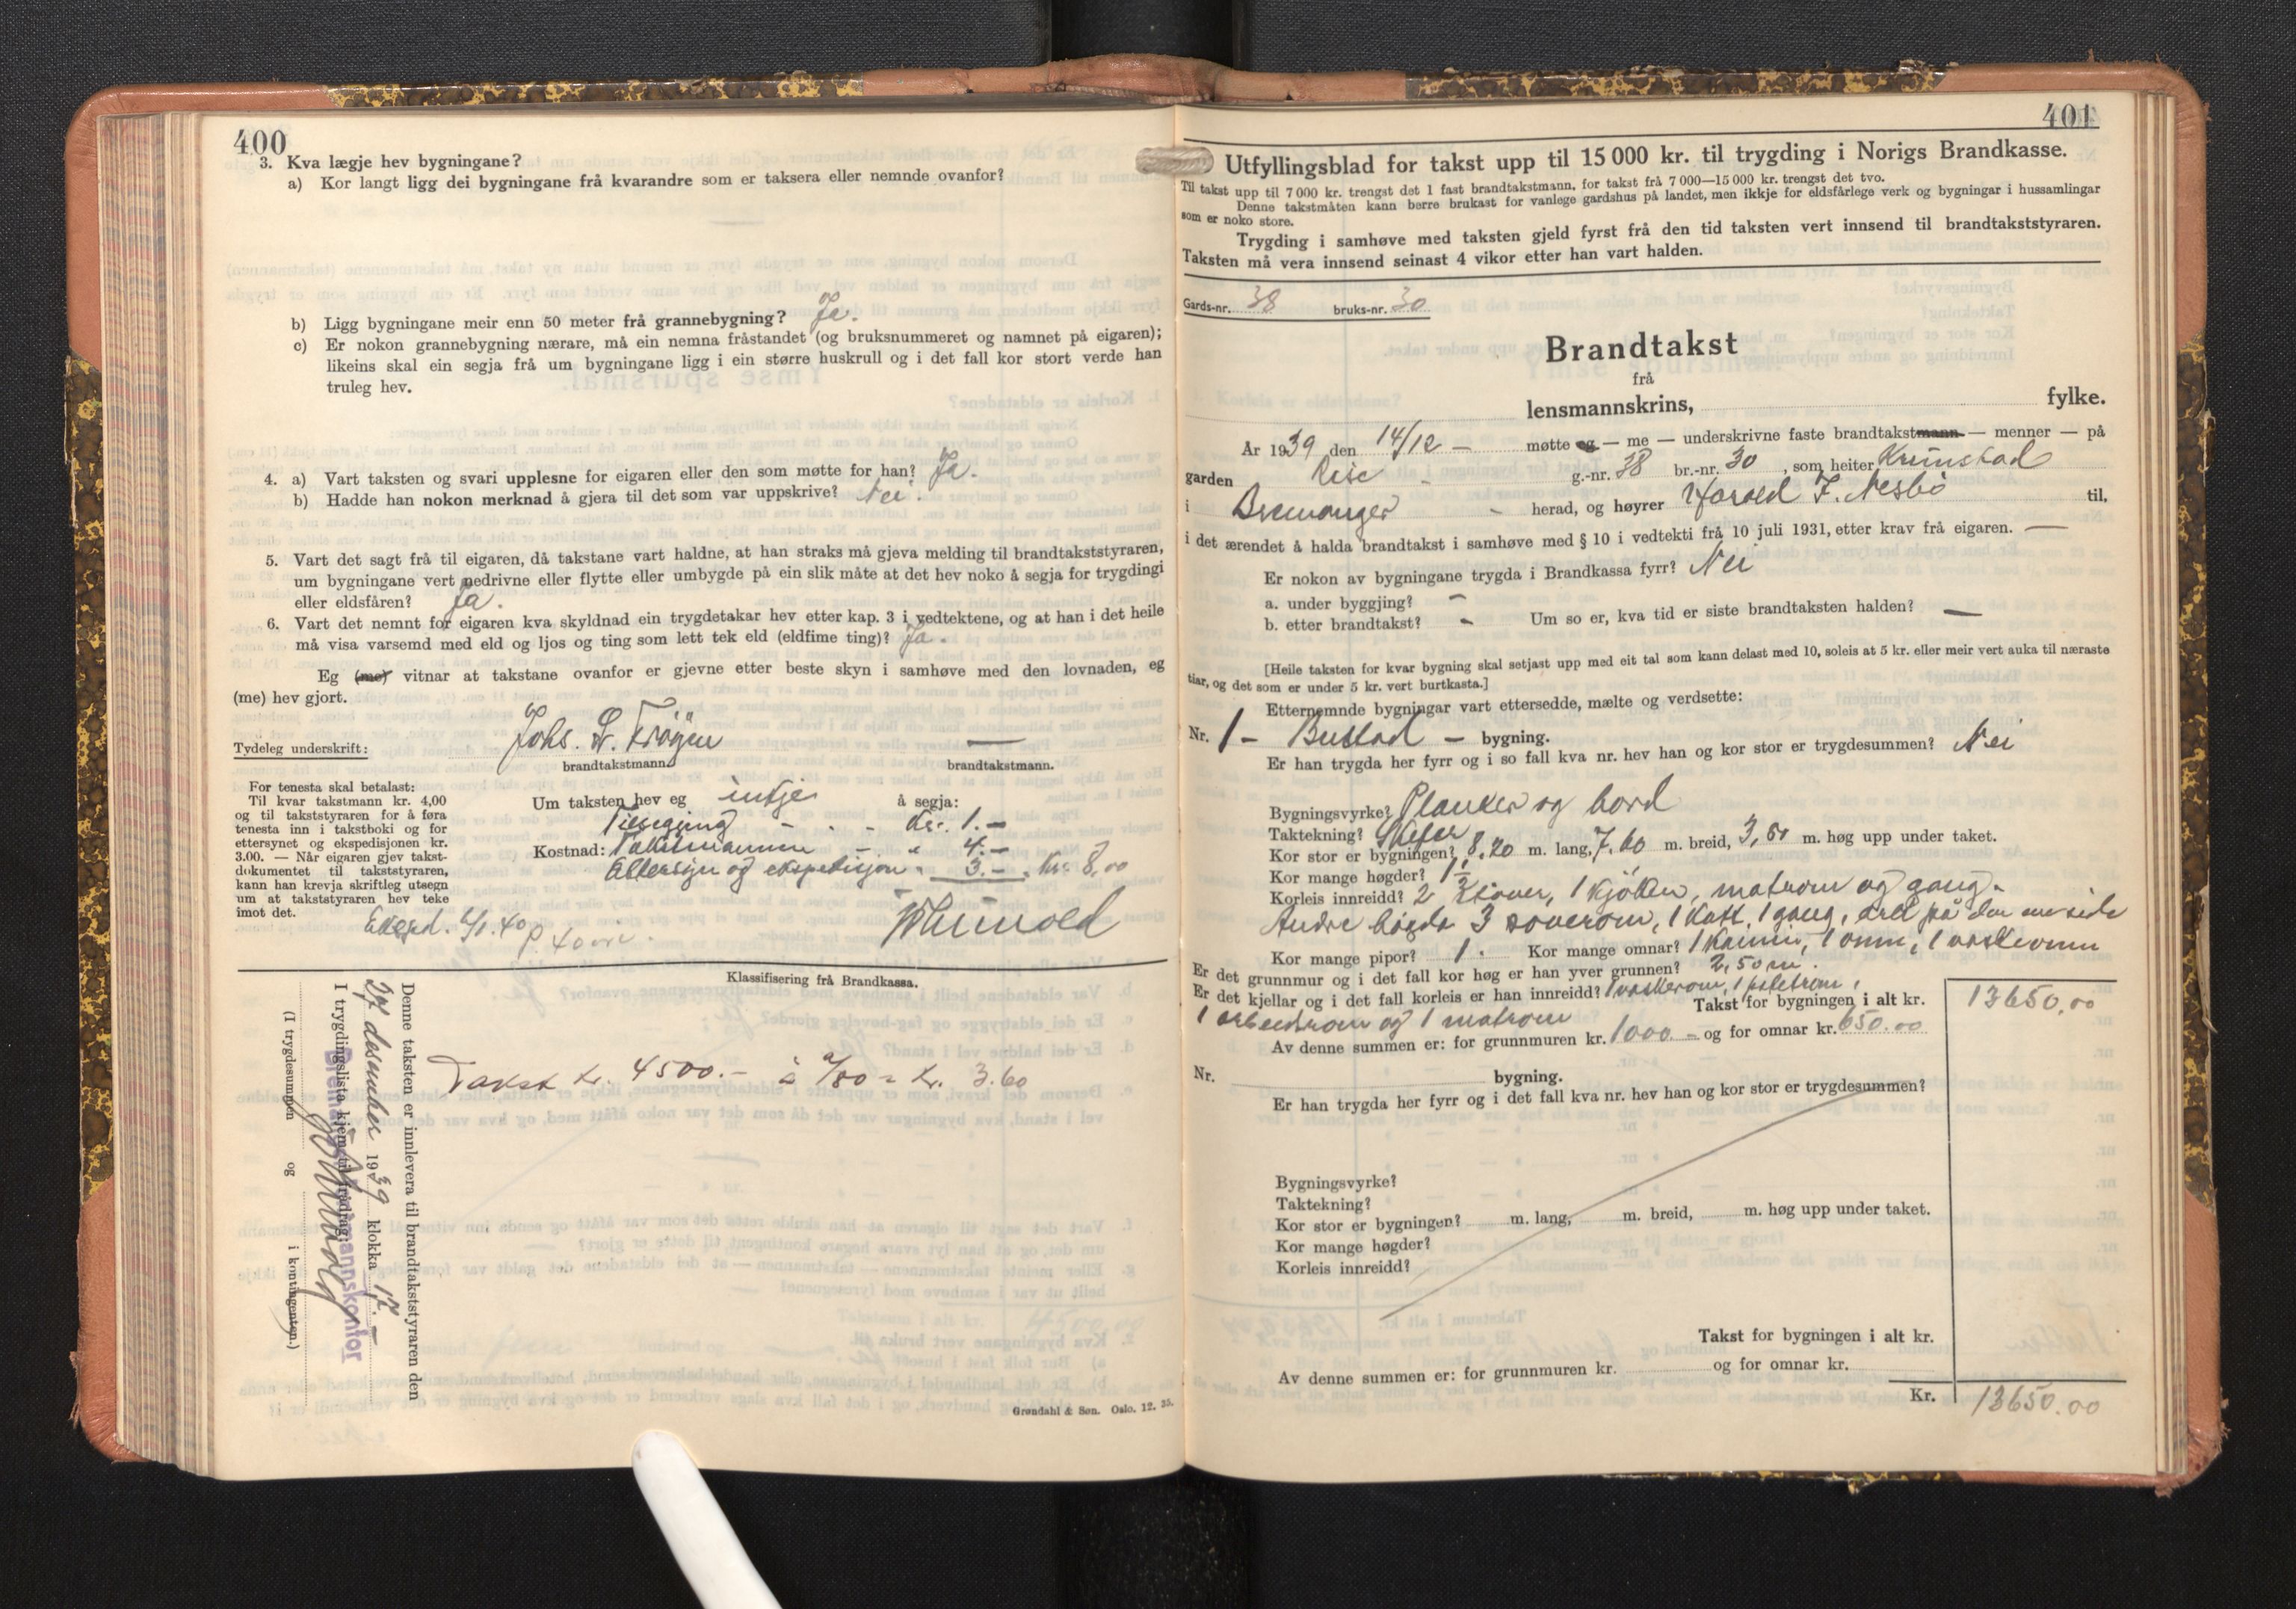 400
3. Kva lægje hev bygningane?
a) Kor langt ligg dei bygningane frå kvarandre som er taksera eller nemnde ovanfor?
b) Ligg bygningane meir enn 50 meter frå grannebygning? Ja.
c) Er nokon grannebygning nærare, må ein nemna fråstandet (og bruksnummeret og namnet på eigaren);
likeins skal ein segja frå um bygningane ligg i ein større huskrull og i det fall kor stort verde han
truleg hev.
4. a) Vart taksten og svari upplesne for eigaren eller den som møtte for han? Ja.
b) Hadde han nokon merknad å gjera til det som var uppskrive? Nei.
5. Vart det sagt frå til eigaren, då takstane vart haldne, at han straks må gjeva melding til brandtakststyraren,
um bygningane vert nedrivne eller flytte eller umbygde på ein slik måte at det hev noko å segja for trygdingi
eller eldsfåren? Ja.
6. Vart det nemnt for eigaren kva skyldnad ein trygdetakar hev etter kap. 3 i vedtektene, og at han i det heile
må visa varsemd med eld og ljos og ting som lett tek eld (eldfime ting)? Ja.
Eg (me) vitnar at takstane ovanfor er gjevne etter beste skyn i samhøve med den lovnaden, eg
(me) hev gjort.
Tydeleg underskrift: Johs. L. —
brandtakstmann. brandtakstmann.
For tenesta skal betalast:
Til kvar takstmann kr. 4,00
og til takststyraren for å føra
tenesta inn i takstboki og for
ettersynet og ekspedisjonen kr.
3.00. — Når eigaren gjev takst-
dokumentet til takststyraren,
kann han krevja skriftleg utsegn
um at takststyraren hev teke
imot det.
Um taksten hev eg intje å segja:
- - - Kr. 1.-
Kostnad: Takstmannen - " 4.-
Ettersyn og ekspedisjon " 3.- . Kr. 8,00
Eksp. 6/1.40
Klassifisering frå Brandkassa.
Takst kr. 4500.- à a/80 = kr. 3.60
Denne taksten er innlevera til brandtakststyraren den
27 desember 1939 klokka 17.-
I trygdingslista kjem til frådrag:
Bremanger lensmannskontor
(I trygdesummen og i kontingenten.)
Grøndahl & Søn. Oslo. 12. 35.
401
Utfyllingsblad for takst upp til 15 000 kr. til trygding i Norigs Brandkasse.
Til takst upp til 7 000 kr. trengst det 1 fast brandtakstmann, for takst frå 7 000—15 000 kr. trengst det tvo.
Denne takstmåten kann berre brukast for vanlege gardshus på landet, men ikkje for eldsfårlege verk og bygningar i hussamlingar
som er noko store.
Trygding i samhøve med taksten gjeld fyrst frå den tid taksten vert innsend til brandtakststyraren.
Taksten må vera innsend seinast 4 vikor etter han vart halden.
Gards-nr. 38 bruks-nr. 30
Brandtakst
frå
lensmannskrins, fylke.
År 1939 den 14/12 - møtte eg — me — underskrivne faste brandtakstmann — menner — på
garden Rise - g.-nr. 38 br.-nr. 30, som heiter Krunstad
i Bremanger - herad, og høyrer Harald J. Nesbø til,
i det ærendet å halda brandtakst i samhøve med § 10 i vedtekti frå 10 juli 1931, etter krav frå eigaren. —
Er nokon av bygningane trygda i Brandkassa fyrr? Nei
a. under byggjing? -
b. etter brandtakst? - Um so er, kva tid er siste brandtaksten halden? —
[Heile taksten for kvar bygning skal setjast upp med eit tal som kann delast med 10, soleis at 5 kr. eller meir vert auka til næraste
tiar, og det som er under 5 kr. vert burtkasta.]
Etternemnde bygningar vart ettersedde, mælte og verdsette:
Nr. 1 - Bustad - bygning.
Er han trygda her fyrr og i so fall kva nr. hev han og kor stor er trygdesummen? Nei
Bygningsvyrke? Planker og bord
Taktekning? Skifer
Kor stor er bygningen? 8,20 m. lang, 7,60 m. breid, 3,50 m. høg upp under taket.
Kor mange høgder? 1½
Korleis innreidd? 2 stover, 1 kjøkken, matrom og gang.
Andre høgda 3 soverom, 1 kott, 1 gang, ark på den eine side
Kor mange pipor? 1. Kor mange omnar? 1 kamin, 1 omn, 1 vaskeomn
Er det grunnmur og i det fall kor høg er han yver grunnen? 2,50 m.
Er det kjellar og i det fall korleis er han innreidd? 1 vaskerom,
1 arbeidsrom og 1 matrom Takst for bygningen i alt kr. 13650,00
Av denne summen er: for grunnmuren kr. 1000.- og for omnar kr. 650.00
Nr. bygning.
Er han trygda her fyrr og i det fall kva nr. hev han og kor stor er trygdesummen?
Bygningsvyrke?
Taktekning?
Kor stor er bygningen? m. lang, m. breid, m. høg upp under taket.
Kor mange høgder?
Korleis innreidd?
Takst for bygningen i alt kr.
Av denne summen er: for grunnmuren kr. og for omnar kr.
Kr. 13650.00